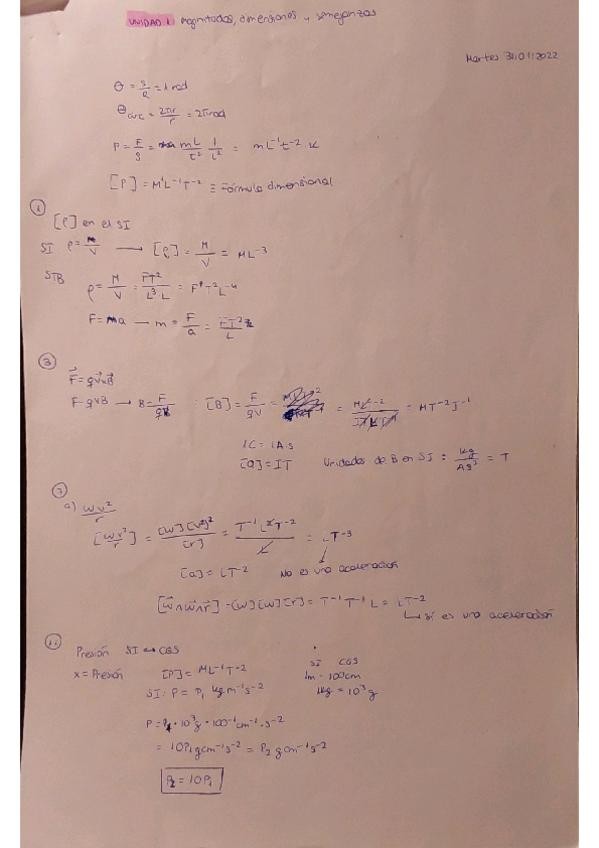 UNIDAD 1 Magnitudes, dimensiones y semejanzas
Martes 31/01/2022
θ = S/R = 1 rad
θ circ = 2πr/r = 2π rad
P = F/S = mL/t² 1/L² = mL⁻¹t⁻²
[P] = M¹L⁻¹T⁻² ≡ Fórmula dimensional
①
[ρ] en el SI
SI ρ = M/V → [ρ] = M/V = ML⁻³
STB ρ = M/V = FT²/L³·L = F¹T²L⁻⁴
F = ma → m = F/a = FT²/L
③
F⃗ = qv⃗×B⃗
F = qvB → B = F/qv [B] = F/qv = = MLT⁻²/ITLT⁻¹ = MT⁻²I⁻¹
1C = 1A·s
[Q] = IT Unidades de B en SI : kg/As² = T
⑦
a) wv²/r
[wv²/r] = [w][v]²/[r] = T⁻¹L²T⁻²/L = LT⁻³
[a] = LT⁻² No es una aceleración
[w⃗∧w⃗∧r⃗] = [w][w][r] = T⁻¹T⁻¹L = LT⁻²
↳ sí es una aceleración
⑪
Presión SI ↔ CGS
x = Presión [P] = ML⁻¹T⁻² SI CGS
1m = 100cm
SI: P = P₁ kg m⁻¹s⁻² 1kg = 10³g
P = P₁·10³g·100⁻¹cm⁻¹·s⁻²
= 10P₁gcm⁻¹s⁻² = P₂ gcm⁻¹s⁻²
P₂ = 10P₁